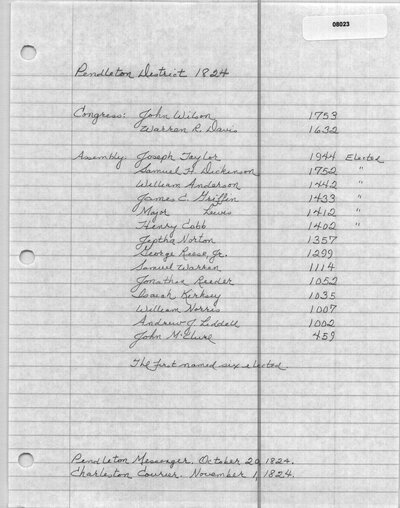 08023
Pendleton District 1824
Congress: John Wilson 1753
Warren R. Davis 1632
Assembly: Joseph Taylor 1944 Elected
Samuel H. Dickenson 1752 "
William Anderson 1442 "
James C. Griffin 1433 "
Major Lewis 1412 "
Henry Cobb 1402 "
Jeptha Norton 1357
George Reese, Jr. 1299
Samuel Warren 1114
Jonathan Reeder 1052
Isaiah Kirksey 1035
William Norris 1007
Andrew J. Liddell 1002
John McClure 459
The first named six elected.
Pendleton Messenger, October 20, 1824.
Charleston Courier, November 1, 1824.